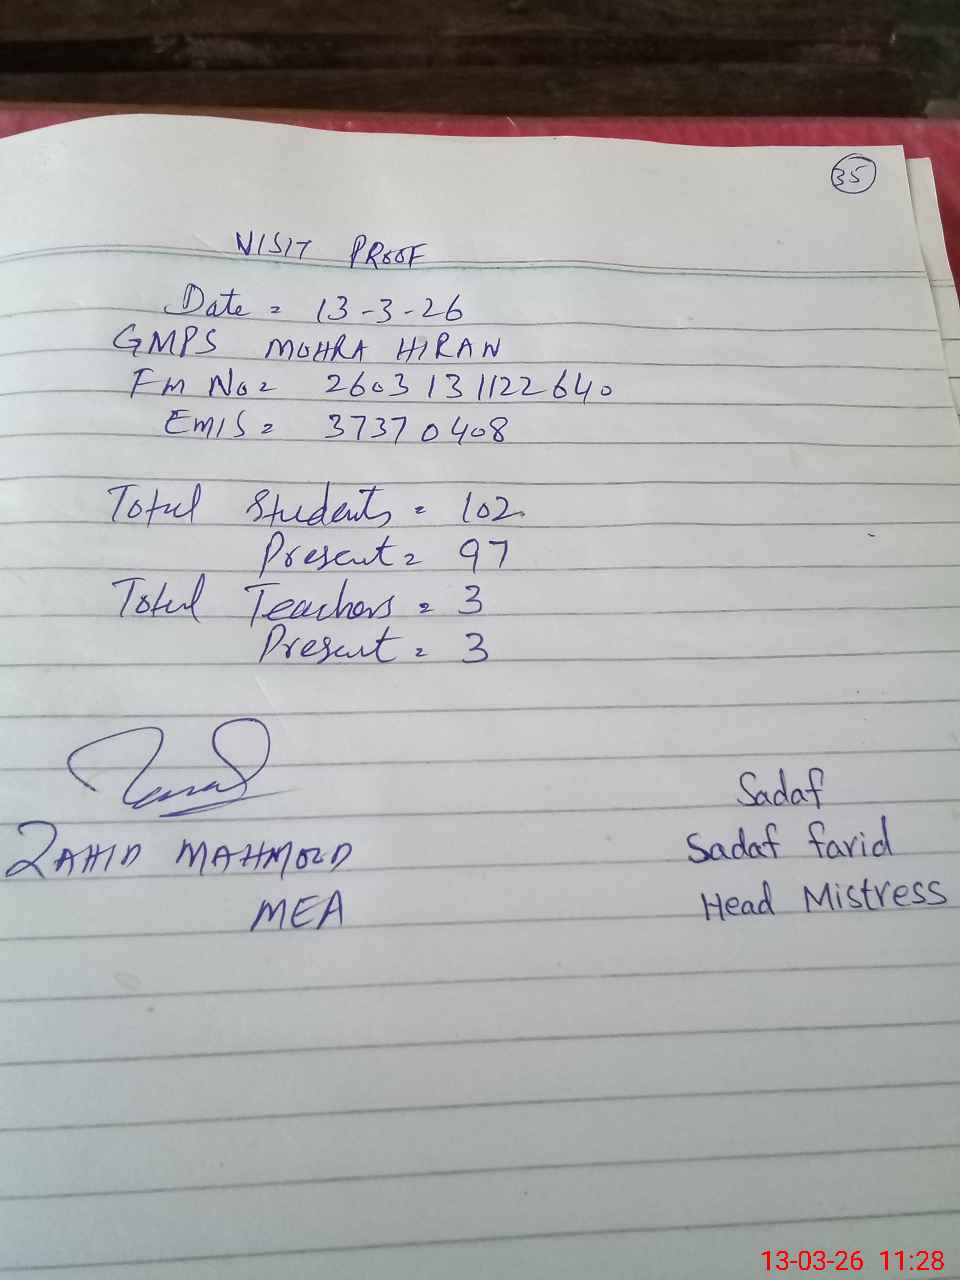 35
VISIT PROOF
Date = 13-3-26
GMPS MOHRA HIRAN
Fm No = 2603131122640
EMIS = 37370408
Total Students = 102
Present = 97
Total Teachers = 3
Present = 3
Sadaf
ZAHID MAHMOOD
Sadaf farid
MEA
Head Mistress
13-03-26 11:28